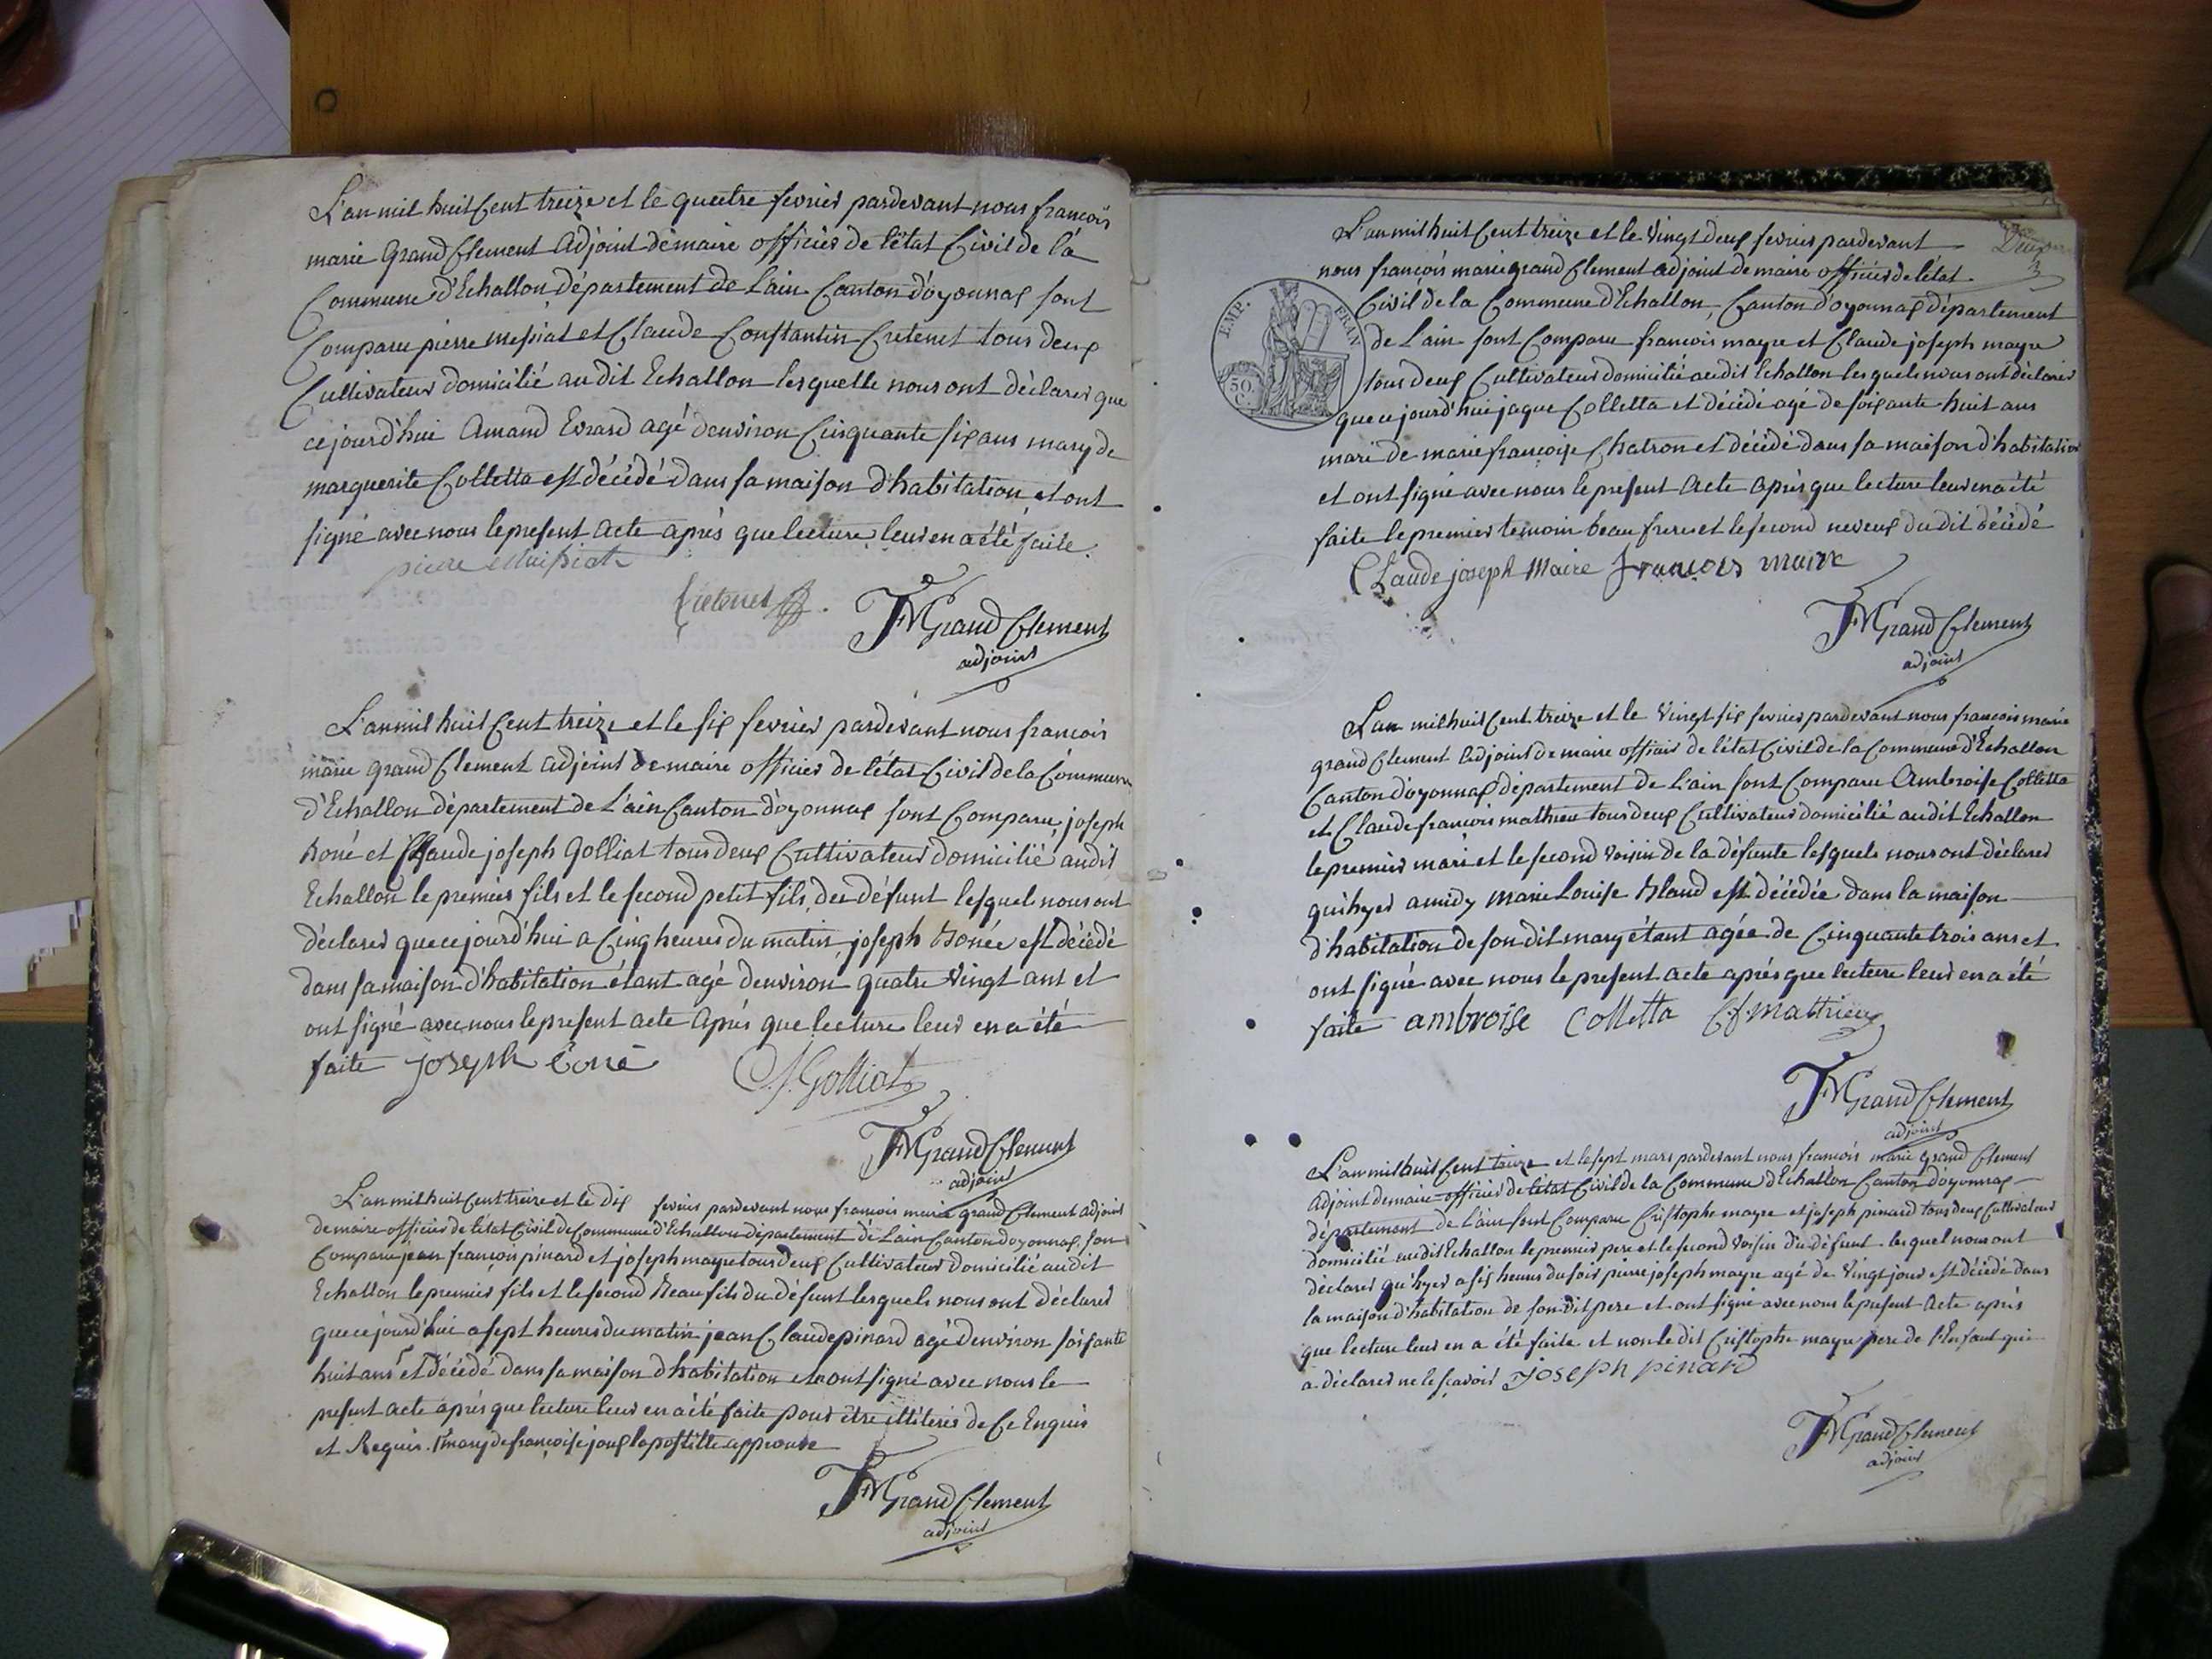 L'an mil huit Cent treize et le quatre fevrier pardevant nous francois
marie Grand Clement Adjoint de maire officier de l'état Civil de la
Commune d'Echallon département de L'ain Canton d'oyonnax sont
Comparu pierre messiat et Claude Constantin Cretenet tous deux
Cultivateur domicilié au dit Echallon lesquelle nous ont déclarer que
cejourd'hui Amand Evrard agé denviron Cinquante six ans mary de
marguerite Colletta est décédé dans sa maison d'habitation et ont
signé avec nous le present acte après que lecture leur en a été faite.
pierre Messiat
Cretenet
FMGrand Clement
adjoint
L'an mil huit Cent treize et le six fevrier pardevant nous francois
marie grand Clement adjoint de maire officier de l'état Civil de la Commune
d'Echallon département de L'ain Canton d'oyonnax sont Comparu joseph
Boné et Claude joseph Golliat tous deux Cultivateur domicilié audit
Echallon le premier fils et le second petit fils du défunt lesquel nous ont
déclarer que cejourd'hui a Cinq heures du matin joseph Bonée est décédé
dans sa maison d'habitation étant agé denviron quatre Vingt ans et
ont signé avec nous le present acte après que lecture leur en a été
faite joseph Boné
C.J.Golliat
FMGrand Clement
adjoint
L'an mil huit Cent treize et le dix fevrier pardevant nous francois marie grand Clement adjoint
de maire officier de l'état Civil de Commune d'Echallon département de L'ain Canton d'oyonnax son
Comparu jean francois pinard et joseph mayre tous deux Cultivateur domicilié audit
Echallon le premier fils et le second Beau fils du défunt lesquels nous ont déclarer
que cejourd'hui a sept heures du matin jean Claude pinard agé denviron soisante
huit ans et décédé dans sa maison d'habitation et nont signé avec nous le
present acte après que lecture leur en a été faite pour être illiterés de Ce Enquis
et Requis. mary de francoise joux la postille approuvé
FMGrand Clement
adjoint
L'an mil huit Cent treize et le Vingt deux fevrier pardevant
nous francois marie grand Clement adjoint de maire officier de l'état
Civil de la Commune d'Echallon, Canton d'oyonnax département
de L'ain sont Comparu francois mayre et Claude joseph mayre
tous deux Cultivateur domicilié audit Echallon lesquels nous ont déclarer
EMP. FRAN
50 C.
que cejourd'hui jaque Colletta et décédé agé de soixante huit ans
mari de marie francoise Chatron et décédé dans sa maison d'habitation
et ont signé avec nous le present Acte après que lecture leur en a été
faite le premier temoin beau frere et le second neveux du dit décédé
Claude joseph Maire francois maire
FMGrand Clement
adjoint
L'an mil huit Cent treize et le Vingt six fevrier pardevant nous francois marie
grand Clement Adjoint de maire officier de l'état Civil de la Commune d'Echallon
Canton d'oyonnax département de L'ain sont Comparu Ambroise Colletta
et Claude francois mathieu tous deux Cultivateur domicilié audit Echallon
le premier mari et le second Voisin de la défunte lesquels nous ont déclarer
qu'hyer a midy marie Louise Bland est décédée dans la maison
d'habitation de son dit mary étant agée de Cinquante trois ans et
ont signé avec nous le present acte après que lecture leur en a été
faite ambroise Colletta C.f.mathieu
FMGrand Clement
adjoint
L'an mil huit Cent treize et le sept mars pardevant nous francois marie grand Clement
Adjoint de maire officier de l'état Civil de la Commune d'Echallon Canton d'oyonnax
département de L'ain sont Comparu Cristophe mayre et joseph pinard tous deux Cultivateur
domicilié audit Echallon le premier pere et le second Voisin du défunt lesquel nous ont
déclarer qu'hyer a six heures du soir pierre joseph mayre agé de Vingt jour est décédé dans
la maison d'habitation de son dit pere et ont signé avec nous le present Acte après
que lecture leur en a été faite et non le dit Cristophe mayre pere de l'Enfant qui
a déclarer ne le scavoir joseph pinard
FMGrand Clement
adjoint